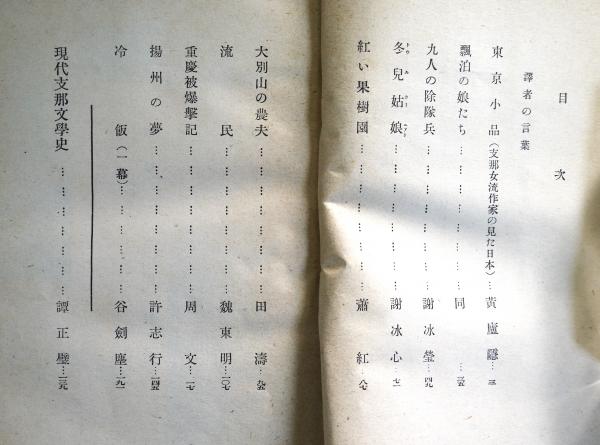 目次
譯者の言葉
東京小品(支那女流作家の見た日本)…黄廬隱…三
飄泊の娘たち…………………同…三五
九人の除隊兵…………………謝冰瑩…四九
冬兒姑娘…………………謝冰心…七一
紅い果樹園…………………蕭紅…八七
大別山の農夫…………………田濤…九五
流民…………………魏東明…一〇七
重慶被爆擊記…………………周文…一一七
揚州の夢…………………許志行…一四五
冷飯(一幕)…………………谷劍塵…一九一
現代支那文學史…………………譚正璧…二三九